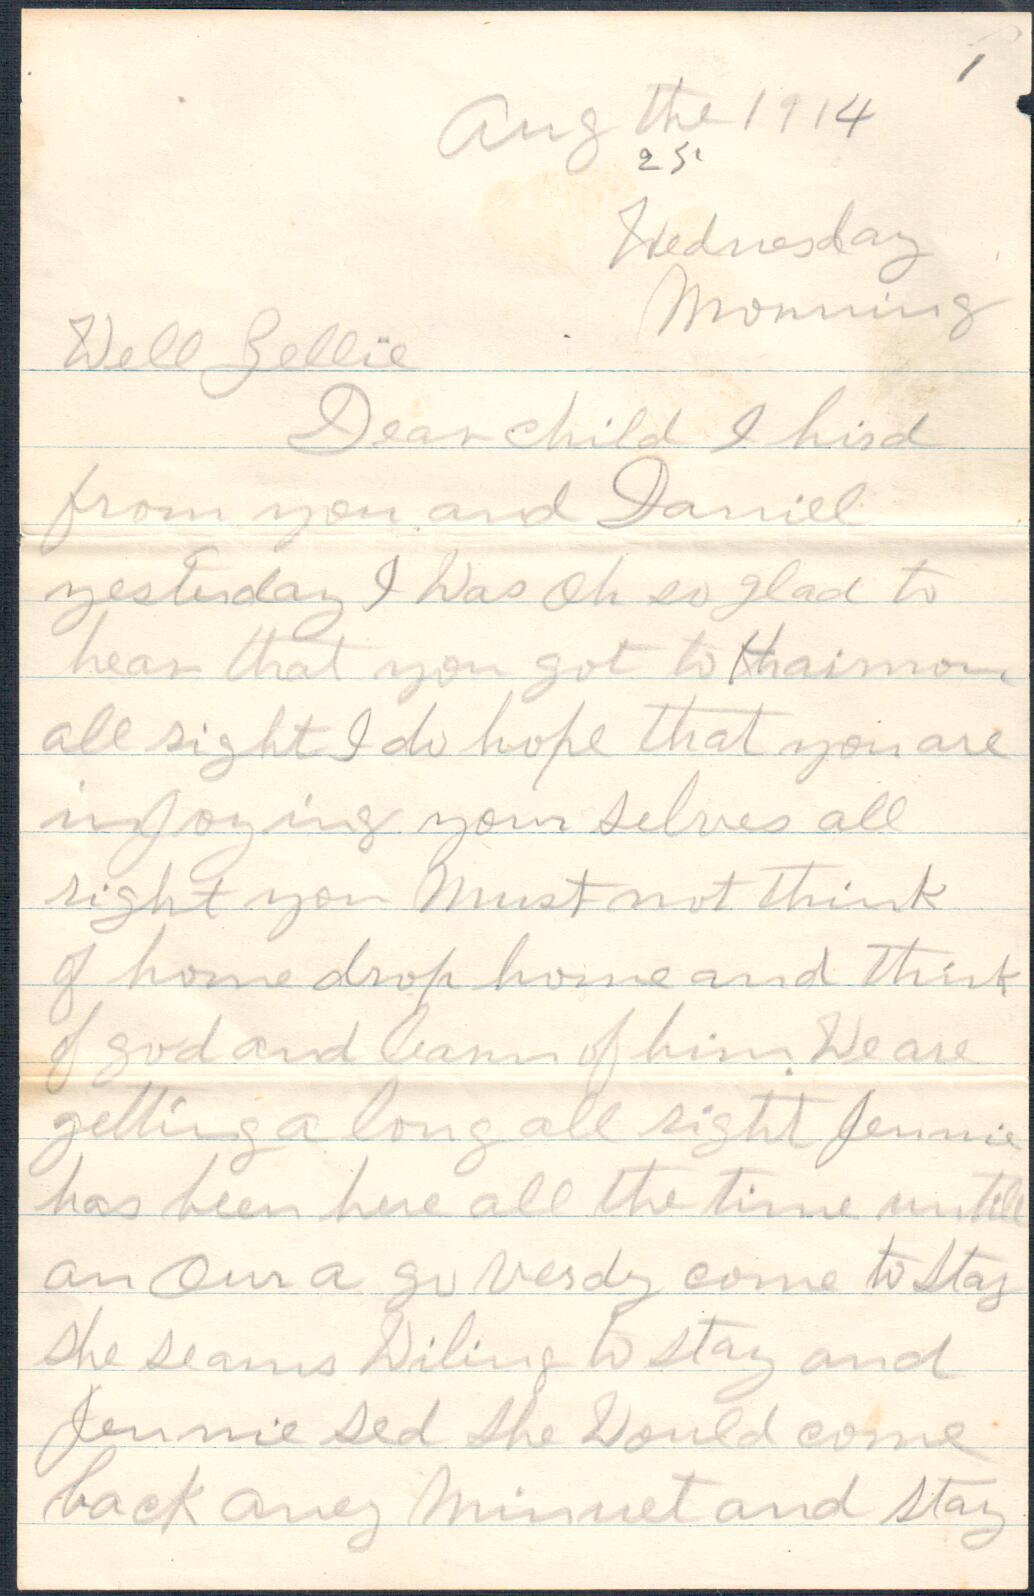 1
Aug the 1914
25
Wednesday
Monning
Well Zellie
Dear child I hird
from you and Daniel
yesterday I Was Oh so glad to
hear that you got to Hairmon
all right I do hope that you are
inJoying your selves all
right you Must not think
of home drop home and think
of god and learn of him We are
getting a long all right Jennie
has been here all the time untill
an Our a go Verdy come to stay
she seams Wiling to stay and
Jennie sed she Would come
back aney Minuet and stay